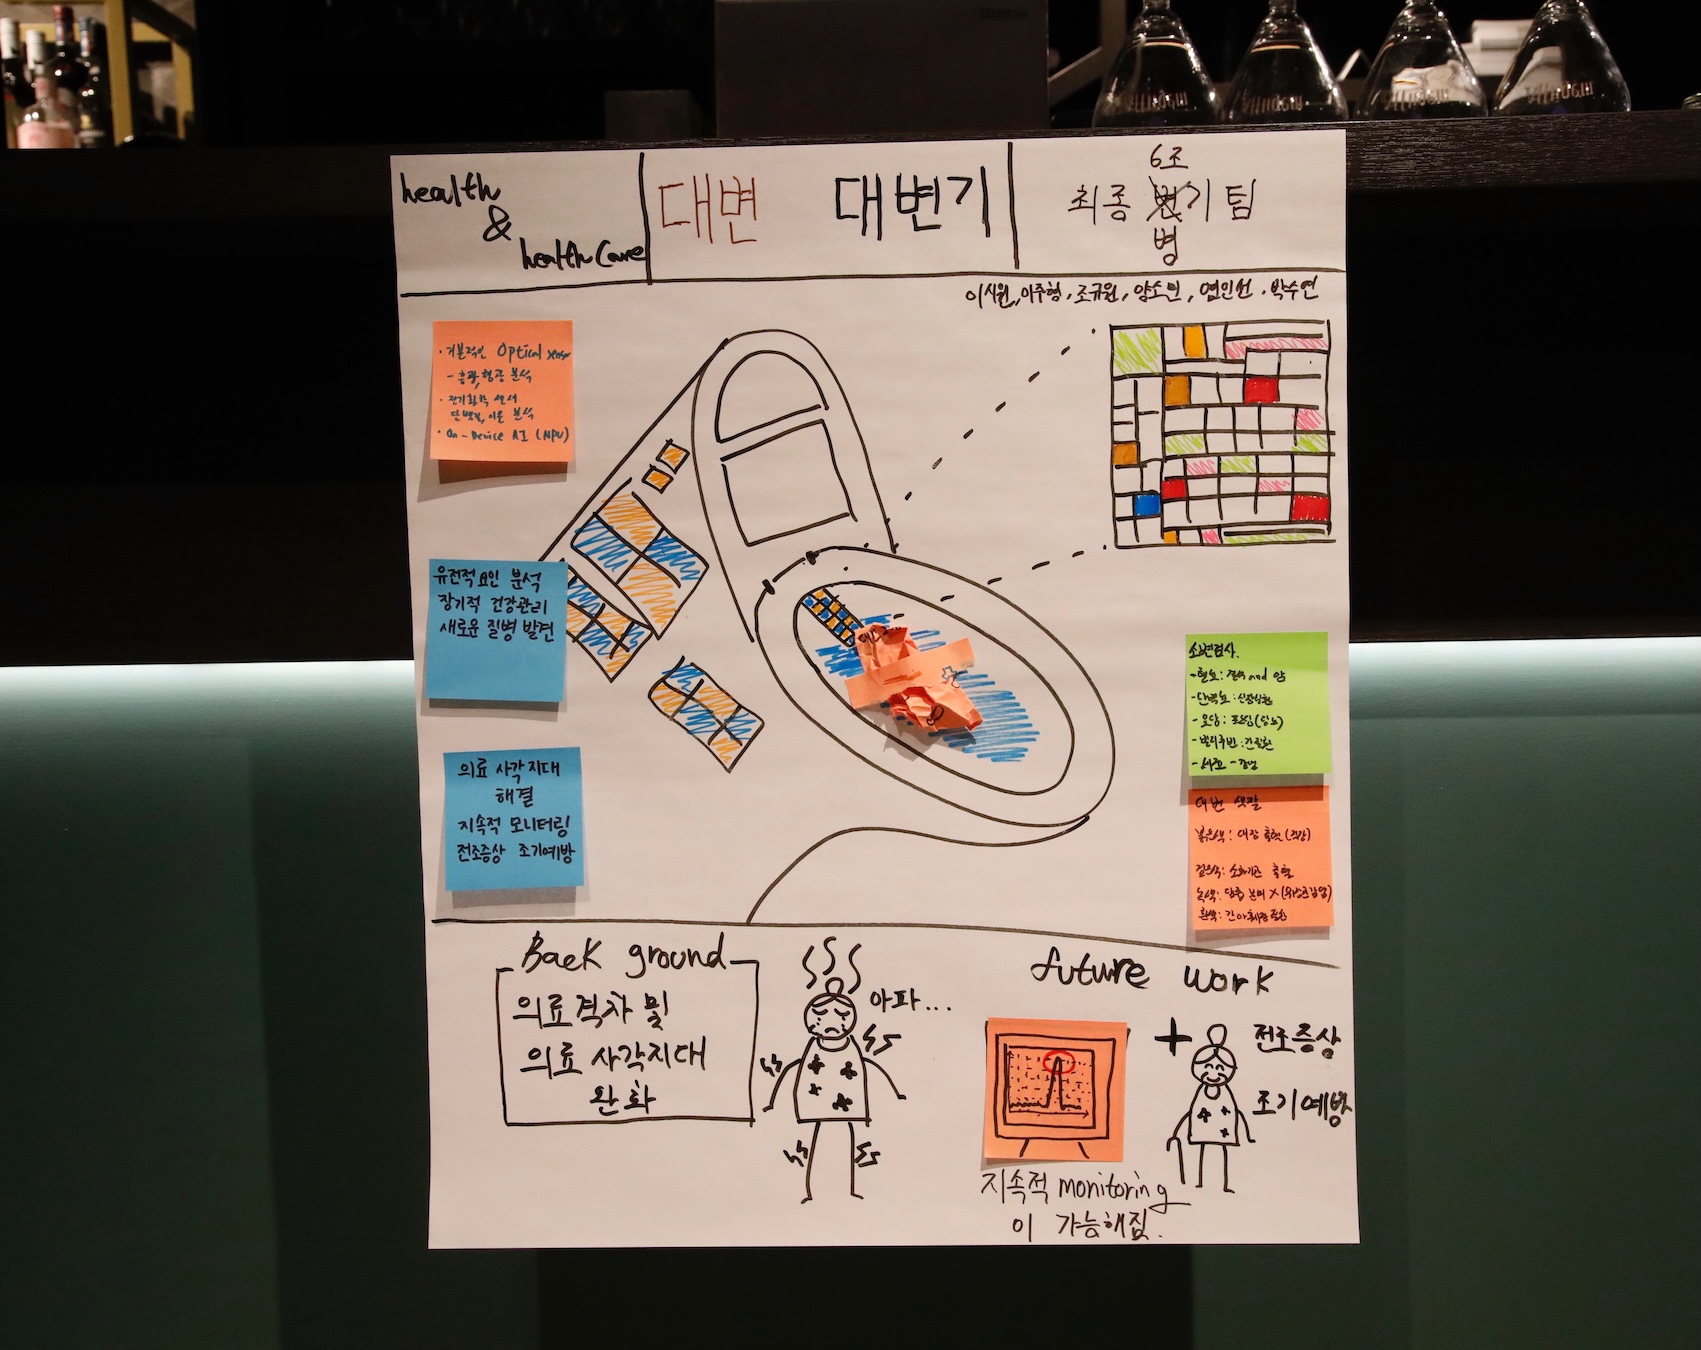 health
&
healthCare
대변 대변기
6조
최종 변기팀
병
이시원, 이주형, 조규원, 양소민, 염인선, 박수연
Optical sensor
- 흡광, 형광 분석
· 전기화학 센서
단백질, 이온 분석
· On-Device AI (NPU)
유전적 요인 분석
장기적 건강관리
새로운 질병 발견
의료 사각지대
해결
지속적 모니터링
전조증상 조기예방
소변검사.
- 혈뇨: and 암
- 단백뇨: 신장질환
- 요당:
- 빌리루빈: 간질환
대변 색깔
붉은색: 대장 출혈
검은색: 소화기관 출혈
녹색: 담즙 분비 X
흰색:
Back ground
의료격차 및
의료 사각지대
완화
아파...
future work
+
전조증상
조기예방
지속적 monitoring
이 가능해짐.